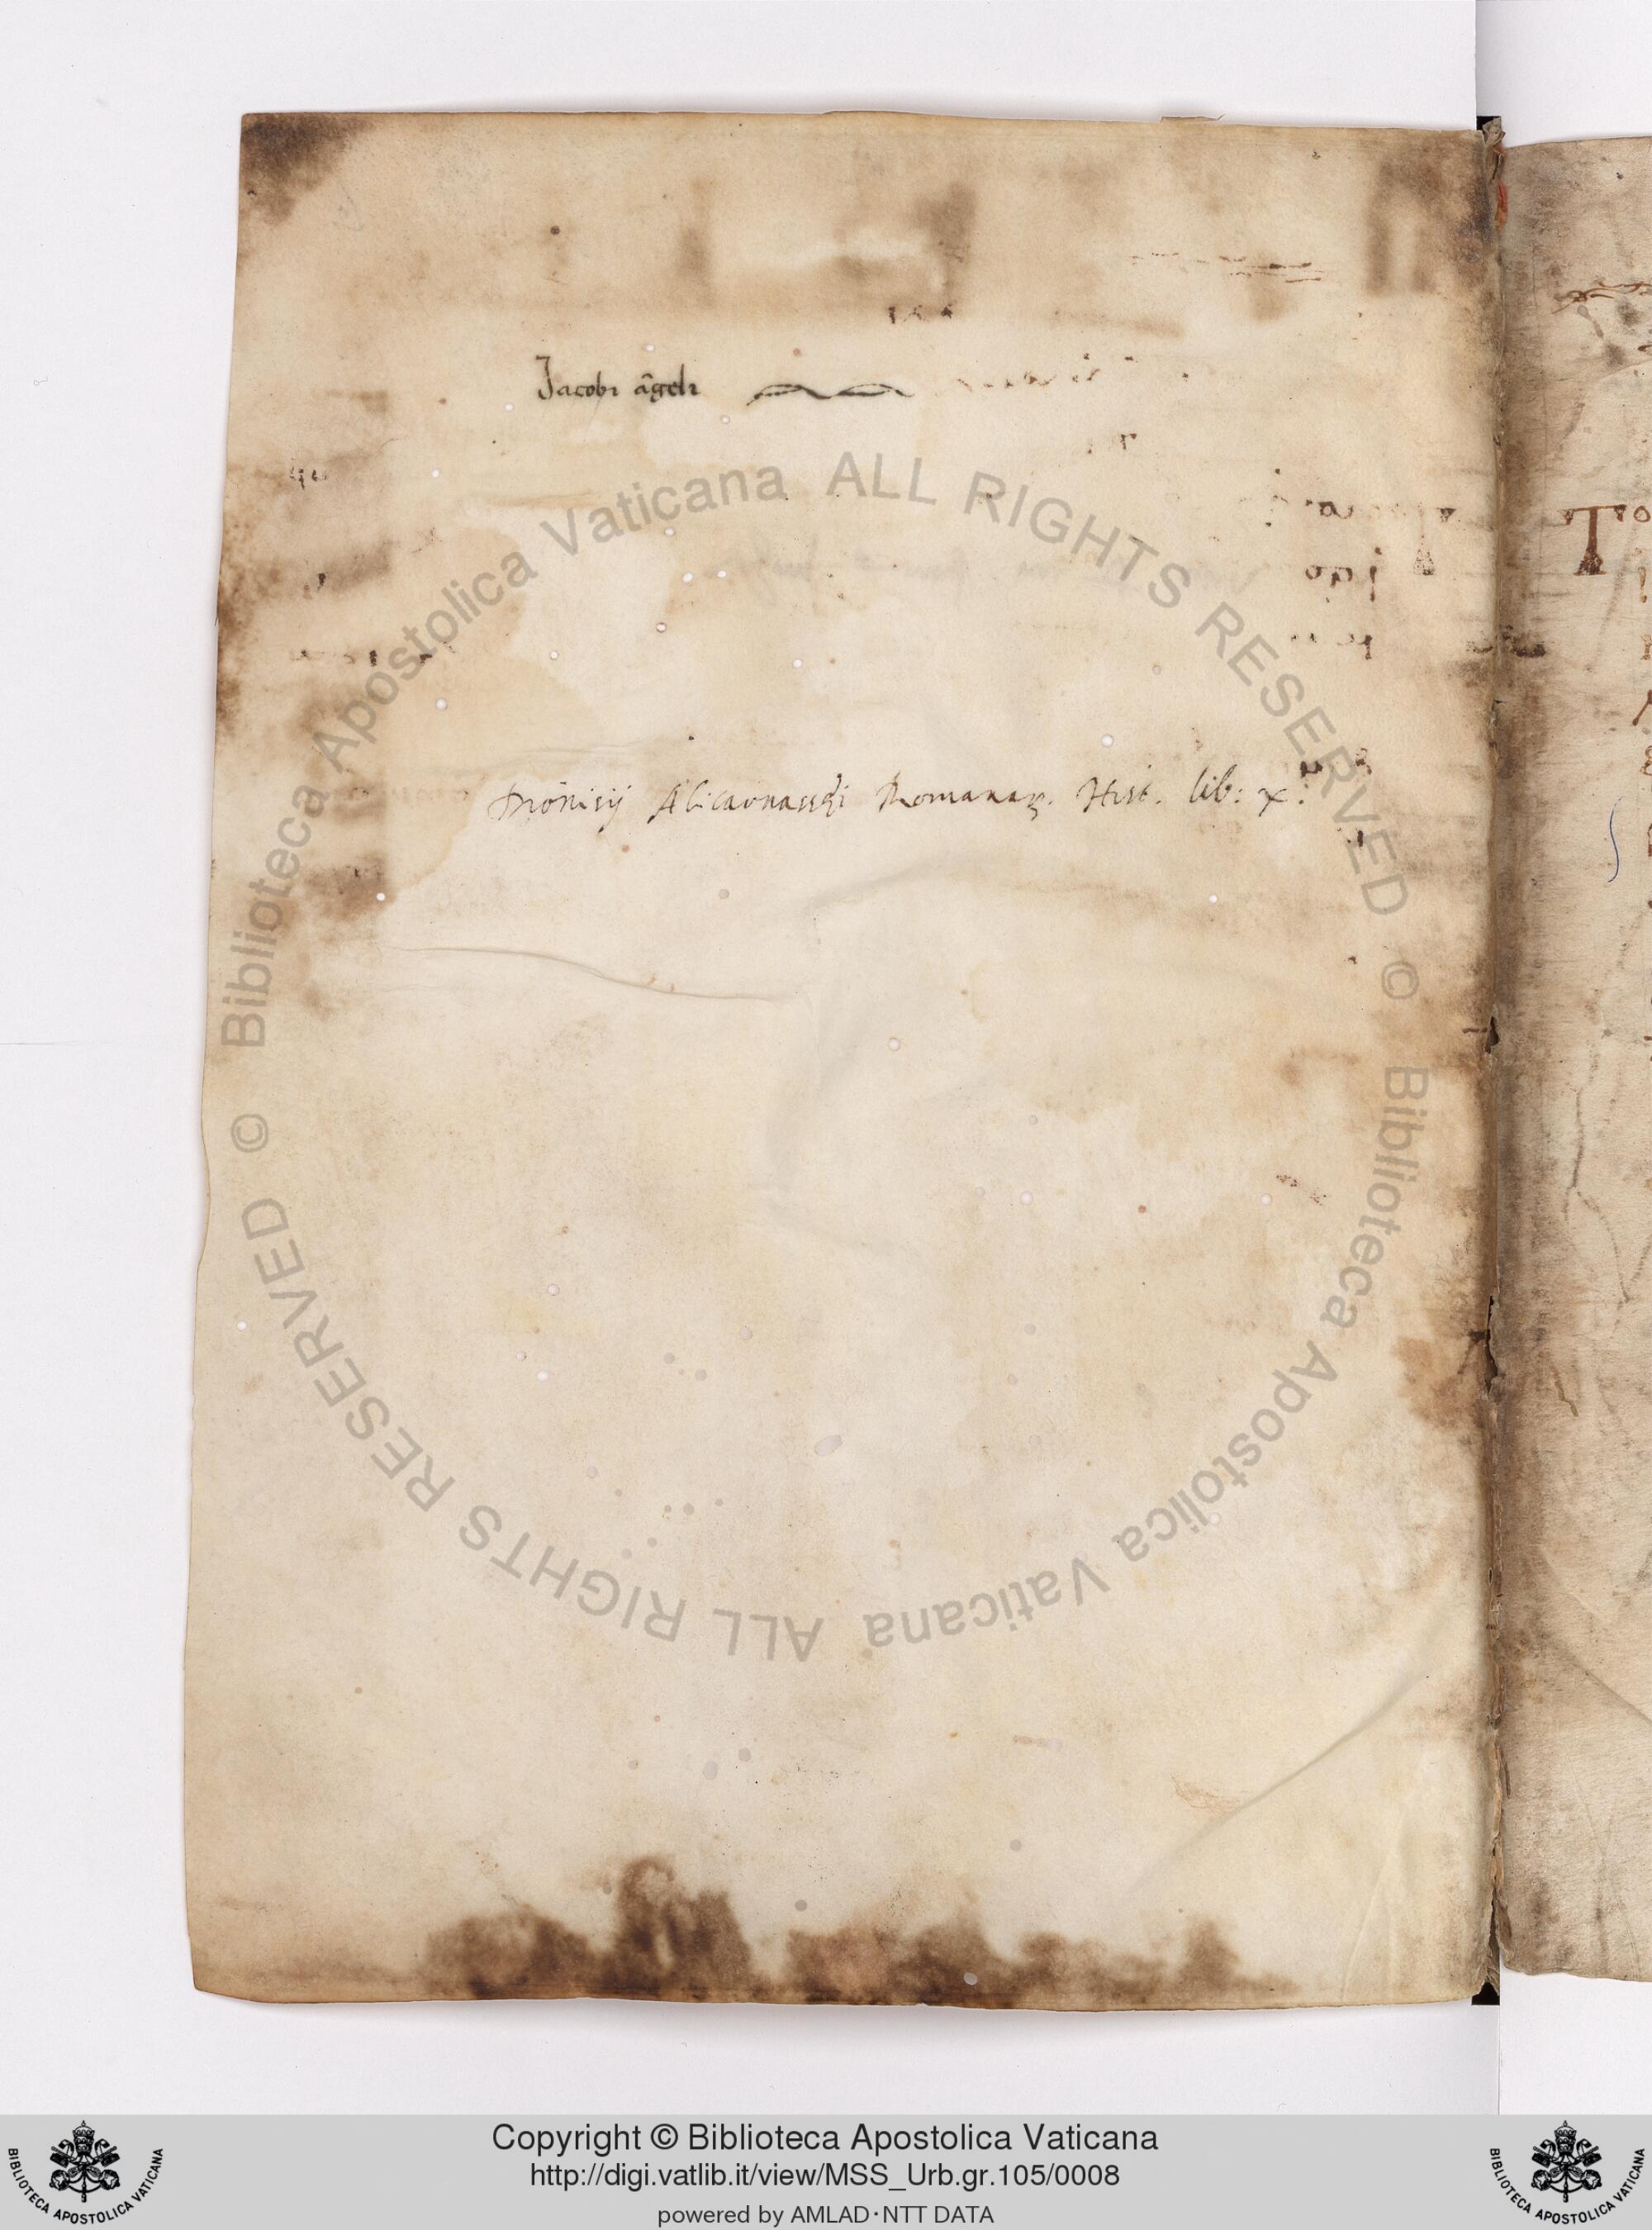 Jacobi āgeli
Dionisij Alicarnassei Romanaꝝ. Hist. lib: x.
T
ορι
Copyright © Biblioteca Apostolica Vaticana
http://digi.vatlib.it/view/MSS_Urb.gr.105/0008
powered by AMLAD·NTT DATA
© Biblioteca Apostolica Vaticana ALL RIGHTS RESERVED
© Biblioteca Apostolica Vaticana ALL RIGHTS RESERVED
BIBLIOTECA APOSTOLICA VATICANA
BIBLIOTECA APOSTOLICA VATICANA